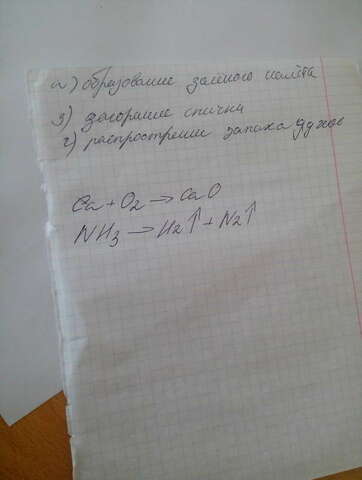 а) образование зелёного налёта
з) загорание спички
г) распространение запаха
Ca + O2 → CaO
NH3 → H2↑ + N2↑